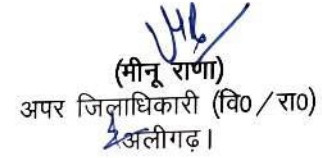 (मीनू राणा)
अपर जिलाधिकारी (वि0/रा0)
अलीगढ़।